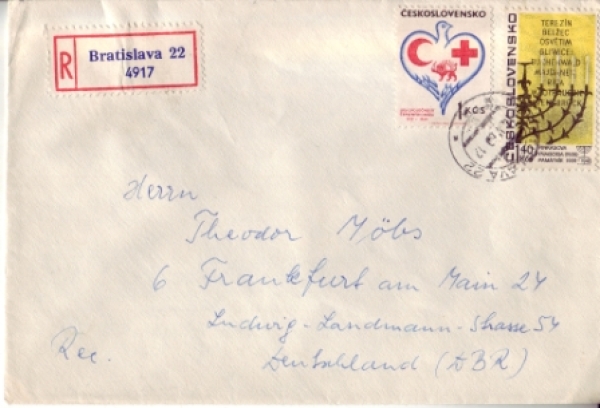 R
Bratislava 22
4917
ČESKOSLOVENSKO
1 KČS
ČESKOSLOVENSKO
TEREZÍN
BELŽEC
OSVĚTIM
GLIWICE
BUCHENWALD
MAJDANEK
RIGA
1.40
Herrn
Theodor Möbs
6 Frankfurt am Main 24
Ludwig-Landmann-Strasse 54
Rec.
Deutschland (DBR)